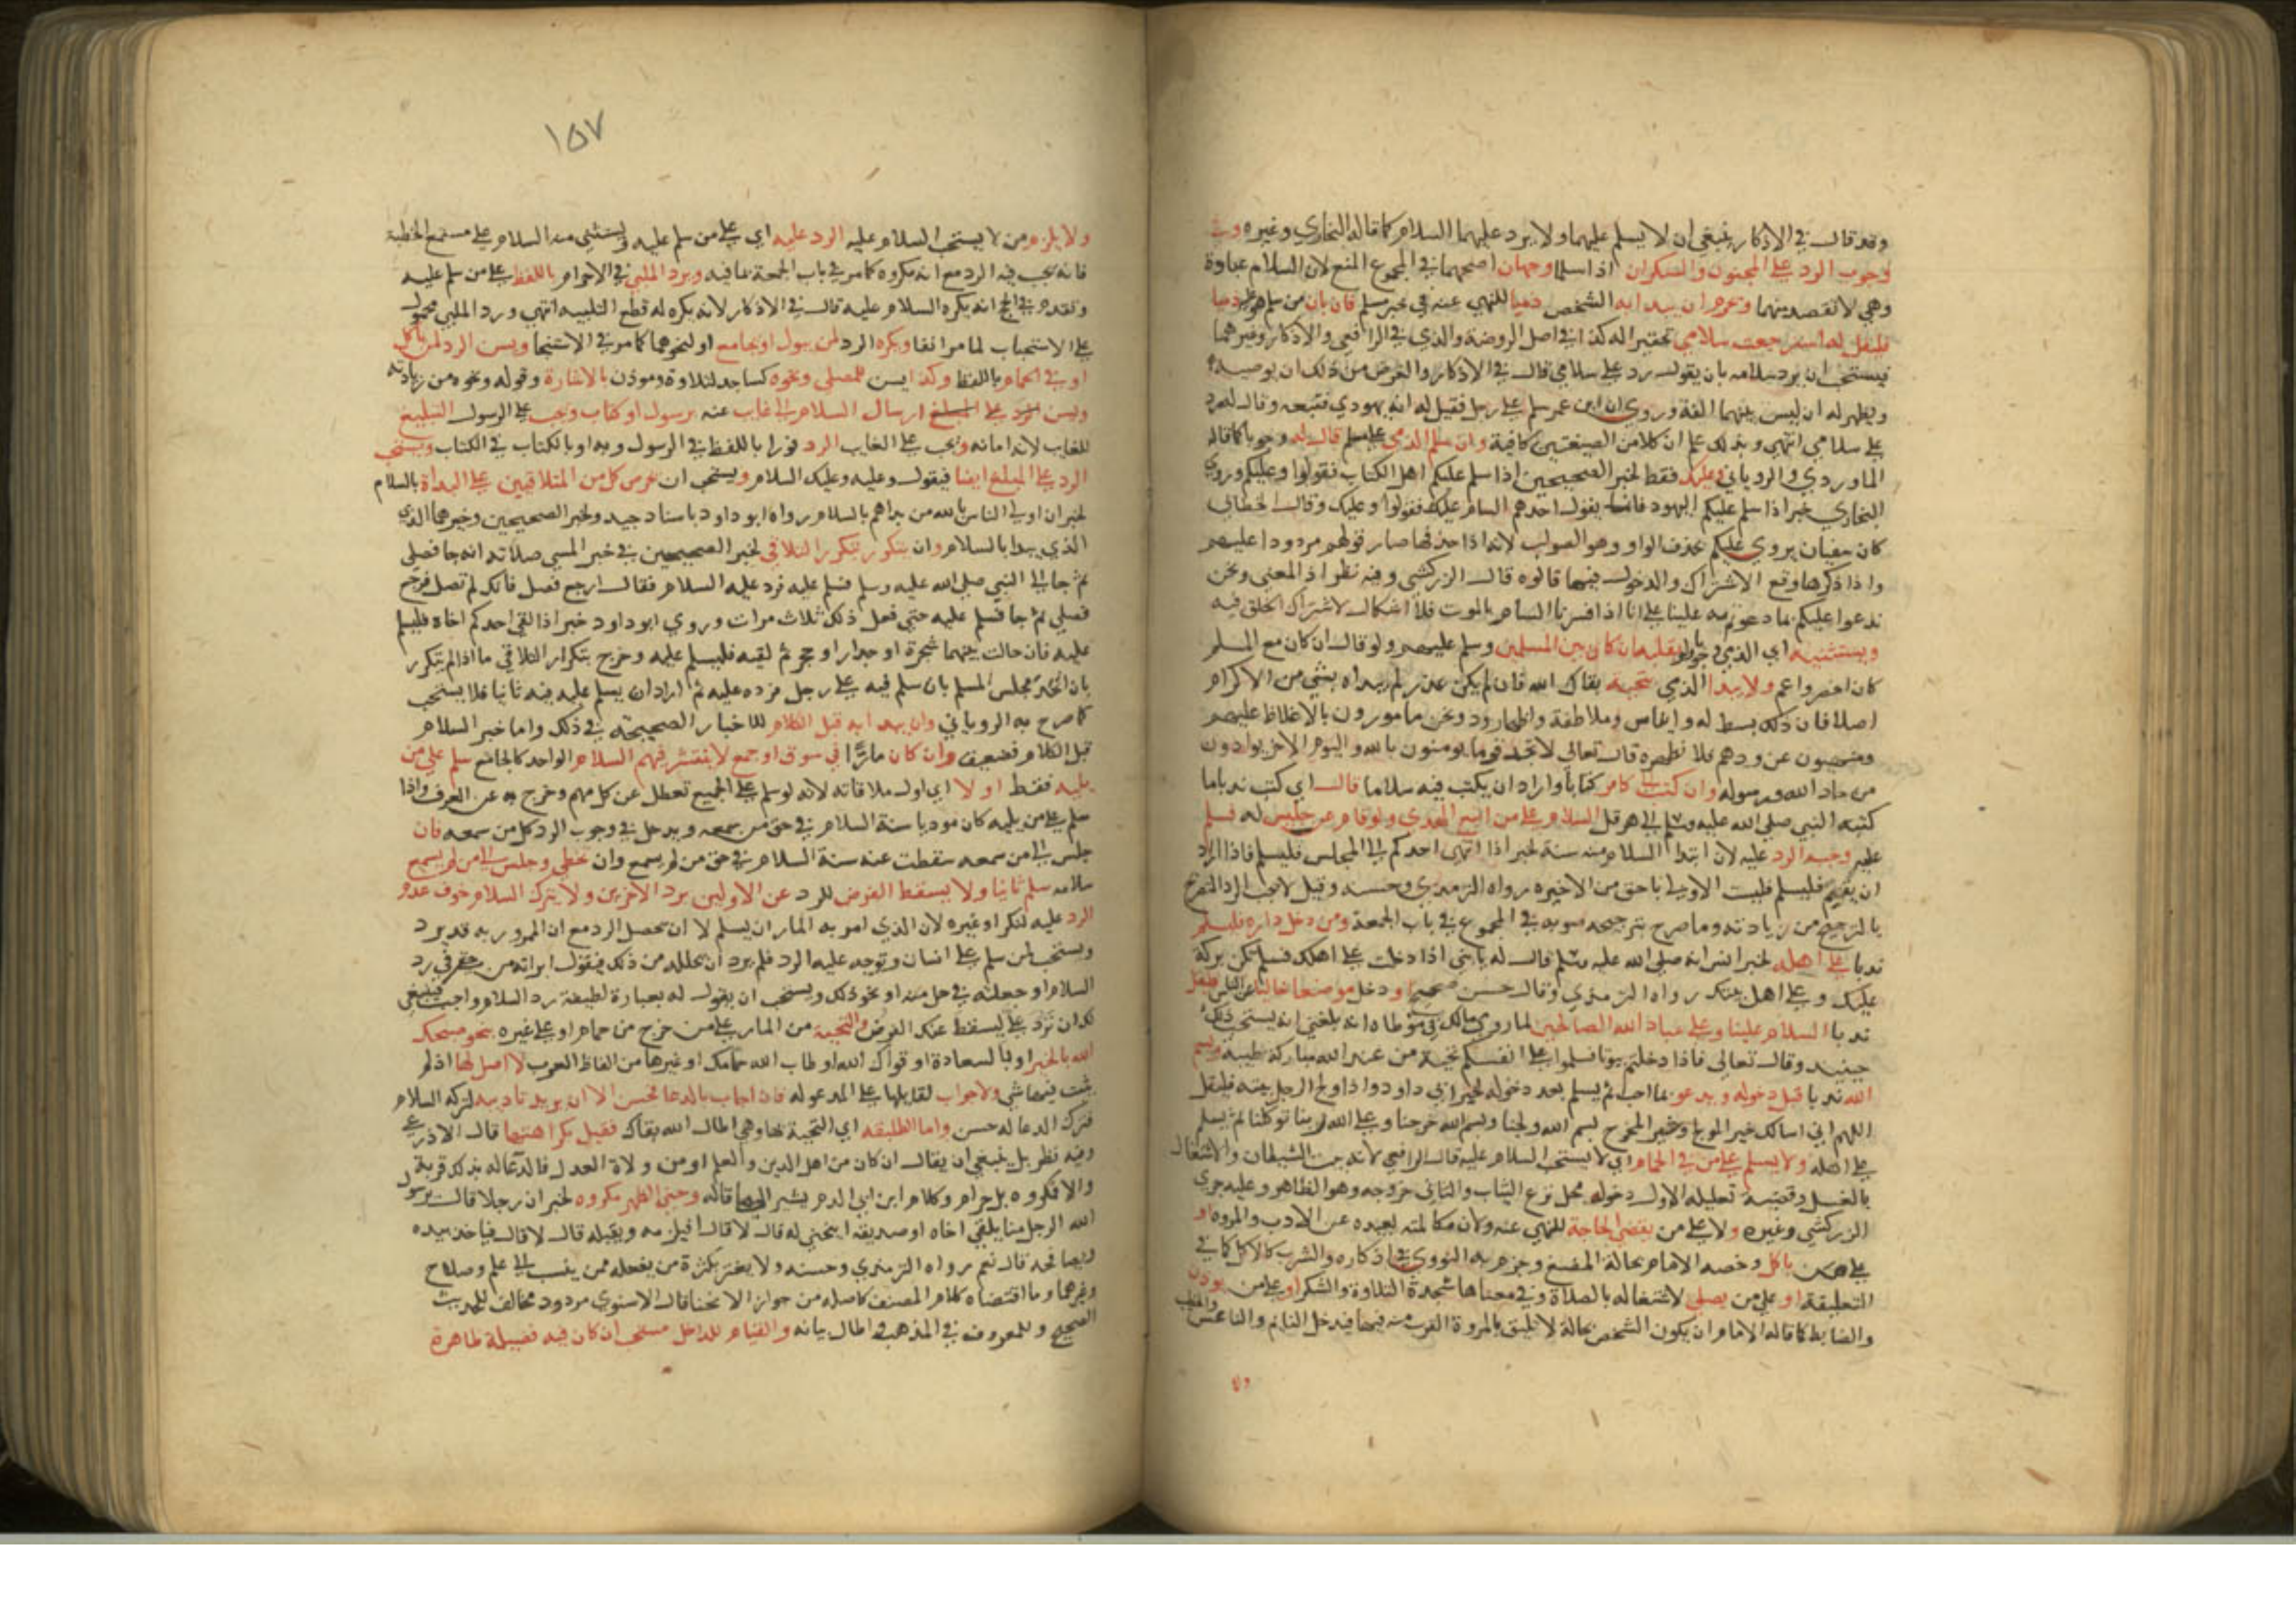 وقد قال في الاذكار ينبغي ان لا يسلم عليهما ولا يرد عليهما السلام كما قاله البخاري وغيره وفي
وجوب الرد على المجنون والسكران اذا سلما وجهان اصحهما في المجموع المنع لان السلام عبادة
وهي لا تقصد منهما وتحرم ان يبدا به الشخص ذميا للنهي عنه في خبر مسلم فان بان من سلم عليه ذميا
فليقل له استرجعت سلامي تحقيرا له كذا في اصل الروضة والذي في الرافعي والاذكار وغيرهما
فيستحب ان يرد سلامه بان يقول رد علي سلامي قال في الاذكار والغرض من ذلك ان يوحشه
ويظهر له ان ليس بينهما الفة وروي ان ابن عمر سلم على رجل فقيل له انه يهودي فتبعه وقال له رد
علي سلامي انتهى وبذلك علم ان كلا من الصيغتين كافية وان سلم الذمي على مسلم قال له وجوبا كما قاله
الماوردي والروياني وعليك فقط لخبر الصحيحين اذا سلم عليكم اهل الكتاب فقولوا وعليكم وروي
البخاري خبر اذا سلم عليكم اليهود فانما يقول احدهم السام عليك فقولوا وعليك وقال الخطابي
كان سفيان يروي عليكم بحذف الواو وهو الصواب لانه اذا حذفها صار قولهم مردودا عليهم
واذا ذكرها وقع الاشتراك والدخول فيما قالوه قال الزركشي وفيه نظر اذ المعنى ونحن
ندعوا عليكم بما دعوتم به علينا على انا اذا فسرنا السام بالموت فلا اشكال لاشتراك الخلق فيه
ويستثنيه اي الذمي وجوبا ولو بقلبه ان كان بين المسلمين وسلم عليهم ولو قال ان كان مع المسلم
كان اخصر واعم ولا يبدا الذمي بتحية بقاك الله فان لم يكن عذر لم يبداه بشي من الاكرام
اصلا فان ذلك بسط له وايناس وملاطفة واظهار ود ونحن مامورون بالاغلاظ عليهم
ومنهيون عن ودهم فلا نظهره قال تعالى لا تجد قوما يومنون بالله واليوم الاخر يوادون
من حاد الله ورسوله وان كتب الى كافر كتابا واراد ان يكتب فيه سلاما قال اي كتب ندبا ما
كتبه النبي صلى الله عليه وسلم الى هرقل السلام على من اتبع الهدى ولو قام عن جليس له فسلم
عليه وجب الرد عليه لان ابتدا السلام منه سنة لخبر اذا انتهى احدكم الى المجلس فليسلم فاذا اراد
ان يقوم فليسلم فليست الاولى باحق من الاخيرة رواه الترمذي وحسنه وقيل لا يجب الرد والتصريح
بالترجيح من زيادته وما صرح بترجيحه صوبه في المجموع في باب الجمعة ومن دخل داره فليسلم
ندبا على اهله لخبر انس انه صلى الله عليه وسلم قال له يا بني اذا دخلت على اهلك فسلم تكن بركة
عليك وعلى اهل بيتك رواه الترمذي وقال حسن صحيح او دخل موضعا خاليا عن الناس فليقل
ندبا السلام علينا وعلى عباد الله الصالحين لما روى مالك في موطاه انه بلغني انه يستحب ذلك
حينئذ وقال تعالى فاذا دخلتم بيوتا فسلموا على انفسكم تحية من عند الله مباركة طيبة ويسم
الله ندبا قبل دخوله ويدعو بما احب ثم يسلم بعد دخوله لخبر ابي داود اذا ولج الرجل بيته فليقل
اللهم اني اسالك خير المولج وخير المخرج بسم الله ولجنا وبسم الله خرجنا وعلى الله ربنا توكلنا ثم يسلم
على اهله ولا يسلم على من في الحمام اي لا يستحب السلام عليه قال الرافعي لانه بيت الشيطان ولاشتغاله
بالغسل وقضية تعليله الاول دخول محل نزع الثياب والثاني خروجه وهو الظاهر وعليه جرى
الزركشي وغيره ولا على من يقضي الحاجة للنهي عنه ولان مكالمته بعيدة عن الادب والمروة او
على من ياكل وخصه الامام بحالة المضغ وجزم به النووي في اذكاره والشرب كالاكل كما في
التعليقة او على من يصلي لاشتغاله بالصلاة وفي معناها سجدة التلاوة والشكر او على من يوذن
والضابط كما قاله الامام ان يكون الشخص بحالة لا تليق بالمروة القرب منه فيها فيدخل النائم والناعس والخطيب
ولا
١٥٧
ولا يلزم من لا يستحب السلام عليه الرد عليه اي على من سلم عليه ويستثنى منه السلام على مستمع الخطبة
فانه يجب فيه الرد مع انه مكروه كما مر في باب الجمعة بما فيه ويرد الملبي في الاحرام باللفظ على من سلم عليه
وتقدم في الحج انه يكره السلام عليه قال في الاذكار لانه يكره له قطع التلبية انتهى ورد الملبي محمول
على الاستحباب لما مر انفا ويكره الرد لمن يبول او يجامع او لنحوهما كما مر في الاستنجا ويسن الرد لمن ياكل
او في الحمام باللفظ وكذا يسن للمصلي ونحوه كساجد لتلاوة وموذن بالاشارة وقوله ونحوه من زيادته
ويسن ارسال السلام الى غايب عنه برسول او كتاب ويجب على الرسول التبليغ
للغايب لانه امانة ويجب على الغايب الرد فورا باللفظ في الرسول وبه او بالكتاب في الكتاب ويستحب
الرد على المبلغ ايضا فيقول وعليه وعليك السلام ويستحب ان يحرص كل من المتلاقيين على البداة بالسلام
لخبر ان اولى الناس بالله من بداهم بالسلام رواه ابو داود باسناد جيد ولخبر الصحيحين وخيرهما الذي
الذي يبدا بالسلام وان يتكرر بتكرر التلاقي لخبر الصحيحين في خبر المسي صلاته انه جا فصلى
ثم جا الى النبي صلى الله عليه وسلم فسلم عليه فرد عليه السلام فقال ارجع فصل فانك لم تصل فرجع
فصلى ثم جا فسلم عليه حتى فعل ذلك ثلاث مرات وروى ابو داود خبر اذا لقي احدكم اخاه فليسلم
عليه فان حالت بينهما شجرة او جدار او حجر ثم لقيه فليسلم عليه وخرج بتكرار التلاقي ما اذا لم يتكرر
بان اتحد مجلس المسلم بان سلم فيه على رجل فرده عليه ثم اراد ان يسلم عليه فيه ثانيا فلا يستحب
كما صرح به الروياني وان يبدا به قبل الكلام للاخبار الصحيحة في ذلك واما خبر السلام
قبل الكلام فضعيف وان كان مارا في سوق او جمع لا ينتشر فيهم السلام الواحد كالجامع سلم على من
يليه فقط اولا اي اول ملاقاته لانه لو سلم على الجميع تعطل عن كل مهم وخرج به عن العرف واذا
سلم على من يليه كان موديا سنة السلام في حق من سمعه ويدخل في وجوب الرد كل من سمعه فان
جلس الى من سمعه سقطت عنه سنة السلام في حق من لم يسمع وان تخطى وجلس الى من لم يسمع
سلامه سلم ثانيا ولا يسقط الفرض للرد عن الاولين برد الاخرين ولا يترك السلام خوف عدم
الرد عليه لتكبر او غيره لان الذي امر به المار ان يسلم لا ان يحصل الرد مع ان الممرور به قد يرد
ويستحب لمن سلم على انسان وتوجه عليه الرد فلم يرد ان يحلله من ذلك فيقول ابراته من حقي في رد
السلام او جعلته في حل منه او نحو ذلك ويستحب ان يقول له بعبارة لطيفة رد السلام واجب فينبغي
لك ان ترد علي ليسقط عنك الفرض والتحية من المار على من خرج من حمام او على غيره بنحو صبحك
الله بالخير او بالسعادة او قواك الله او طاب الله حمامك او غيرها من الفاظ العرب لا اصل لها اذ لم
يثبت فيها شي ولا جواب لقايلها على المدعو له فان اجاب بالدعا فحسن الا ان يريد تاديبه لتركه السلام
فترك الدعا له حسن واما الطلبقة اي التحية بها وهي اطال الله بقاك فقيل بكراهتها قال الاذرعي
وفيه نظر بل ينبغي ان يقال ان كان من اهل الدين والعلم او من ولاة العدل فالدعا له بذلك قربة
والا فمكروه بل حرام وكلام ابن ابي الدم يشير الى ما قاله وحني الظهر مكروه لخبر ان رجلا قال يرسول
الله الرجل منا يلقى اخاه او صديقه اينحني له قال لا قال افيلزمه ويقبله قال لا قال فياخذ بيده
ويصافحه قال نعم رواه الترمذي وحسنه ولا يغتر بكثرة من يفعله ممن ينسب الى علم وصلاح
وغيرهما وما اقتضاه كلام المصنف كاصله من جواز الانحنا قال الاسنوي مردود مخالف للحديث
الصحيح وللمعروف في المذهب واطال بيانه والقيام للداخل مستحب ان كان فيه فضيلة ظاهرة